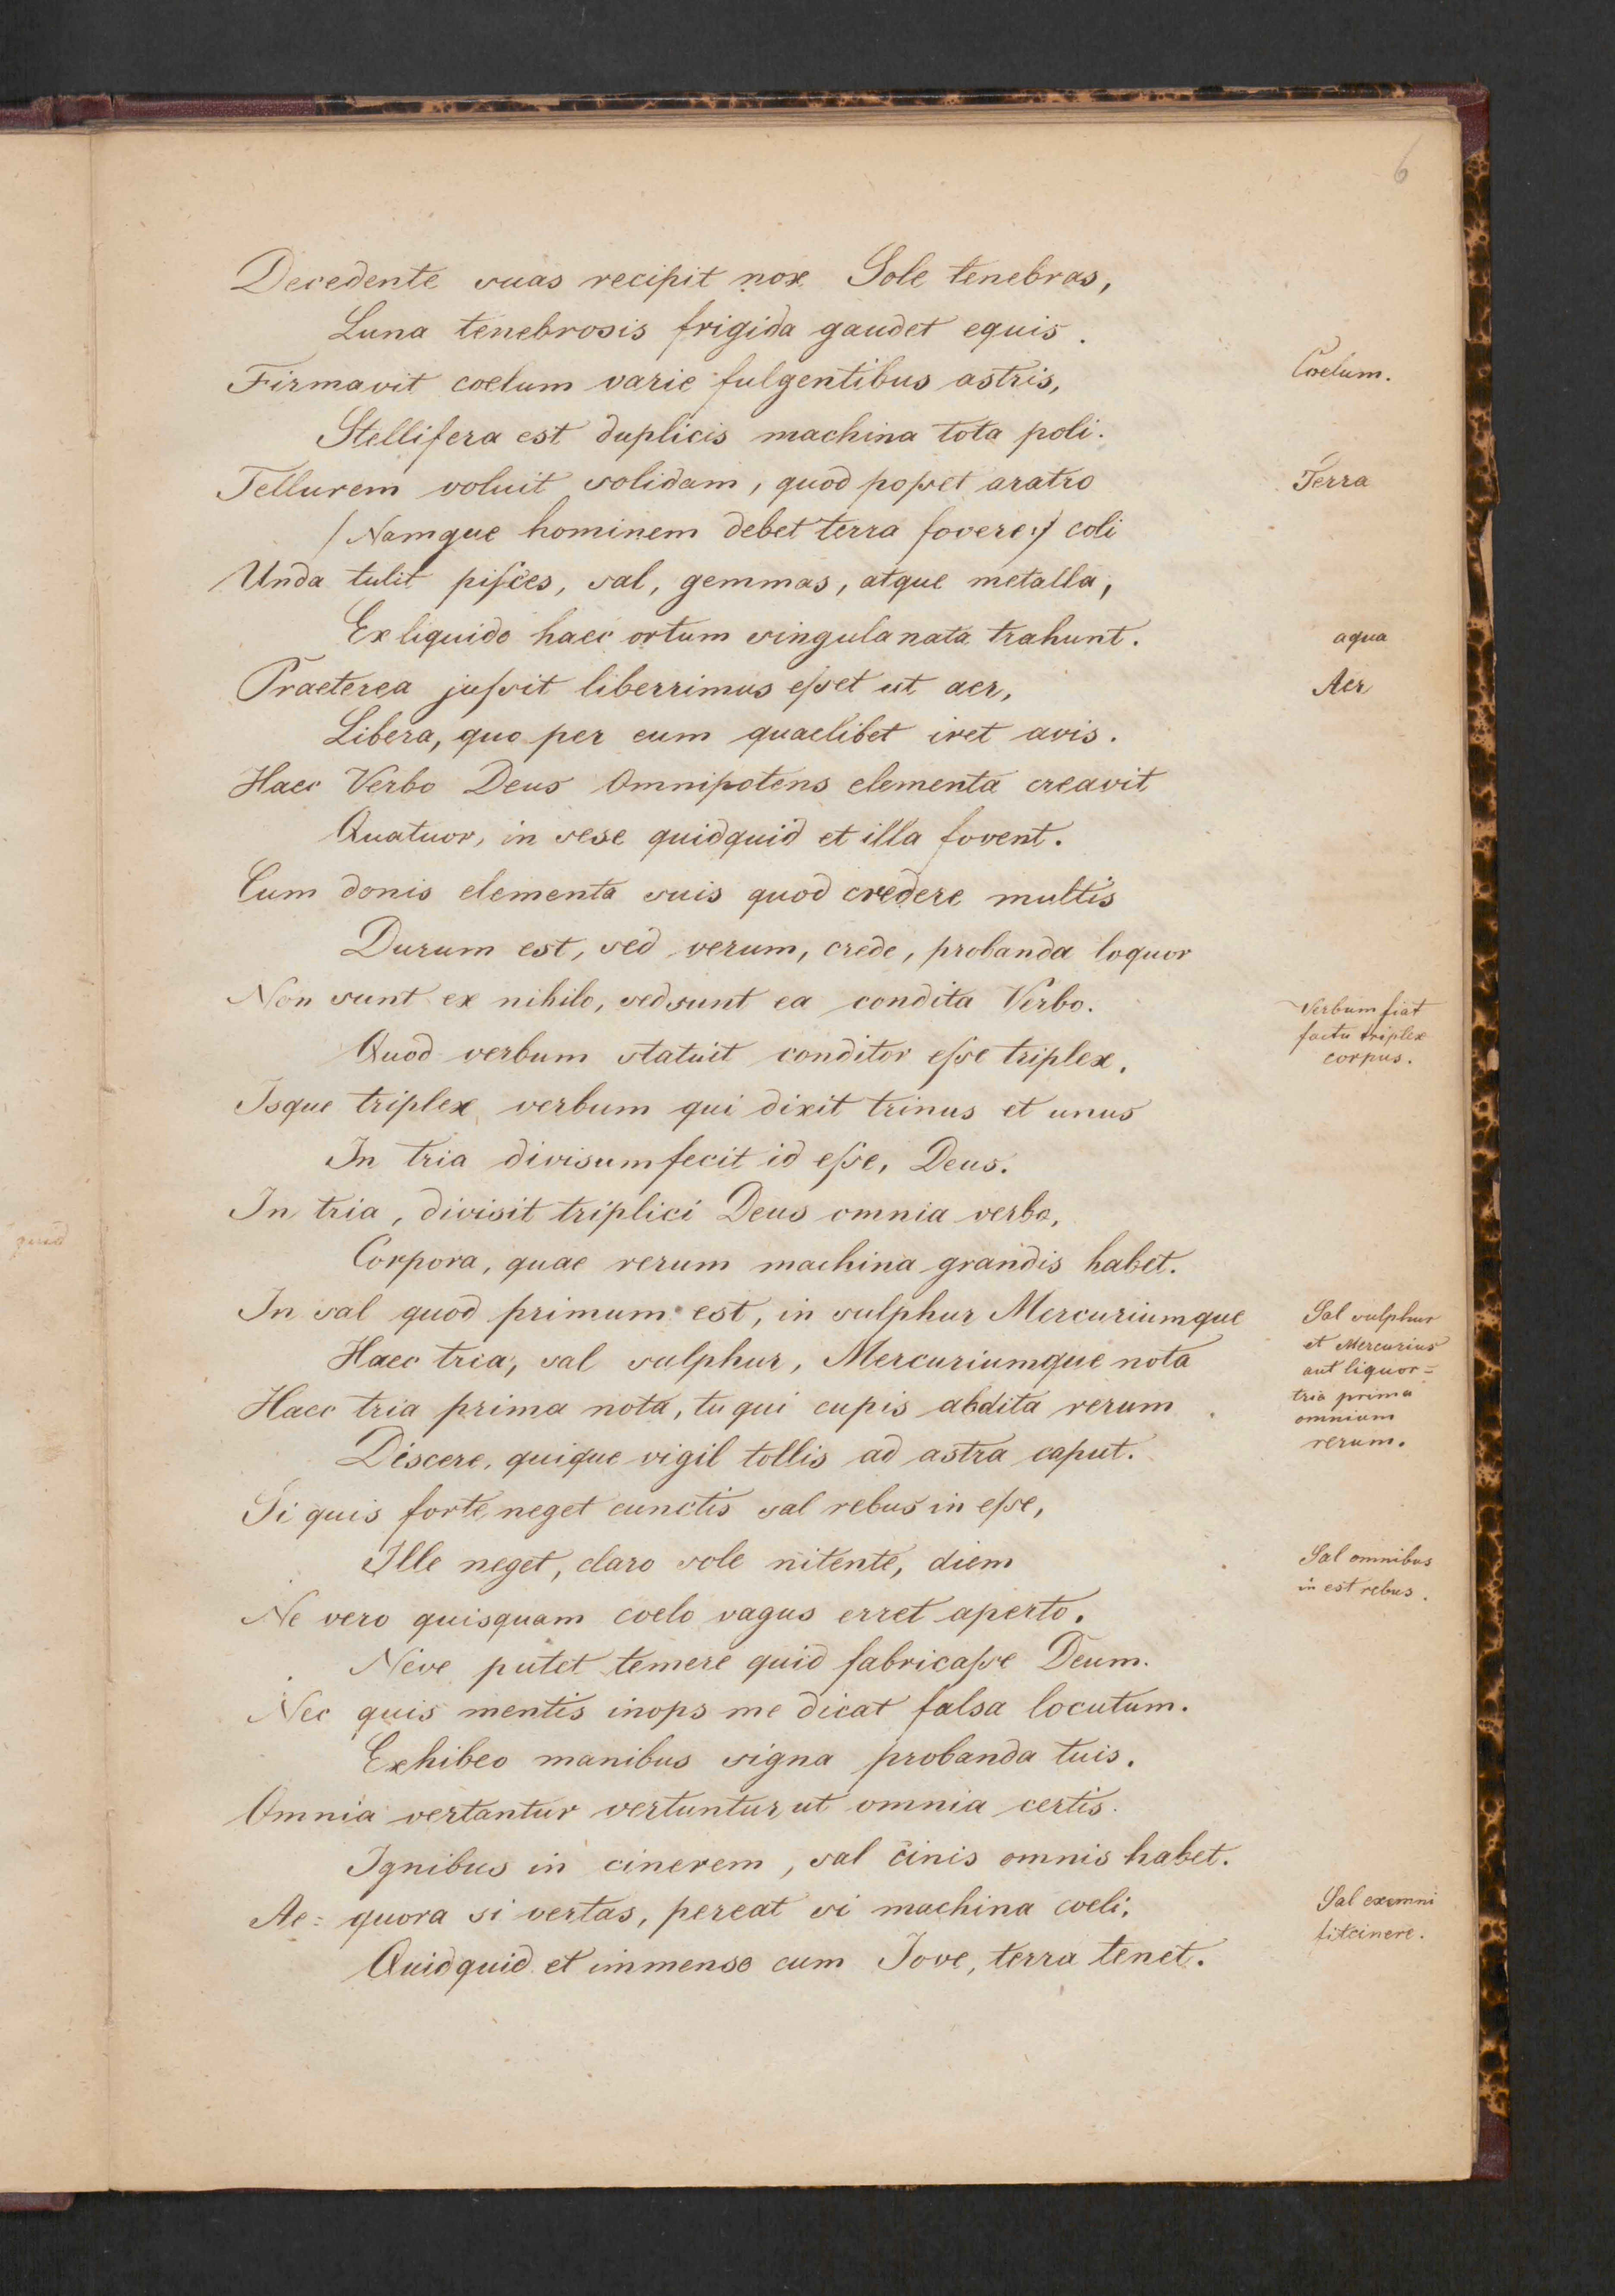 6
Decedente suas recipit nox Sole tenebras,
Luna tenebrosis frigida gaudet equis.
Firmavit coelum varie fulgentibus astris,
Coelum.
Stellifera est duplicis machina tota poli.
Tellurem voluit solidam, quod poſset aratro
Terra
/ Namque hominem debet terra fovere :/ coli
Unda tulit piſces, sal, gemmas, atque metalla,
Ex liquido haec ortum singula nata trahunt.
aqua
Praeterea juſsit liberrimus eſset ut aer,
Aer
Libera, quo per eum quaelibet iret avis.
Haec Verbo Deus Omnipotens elementa creavit
Quatuor, in sese quidquid et illa fovent.
Cum donis elementa suis quod credere multis
Durum est, sed verum, crede, probanda loquor
Non sunt ex nihilo, sed sunt ea condita Verbo.
Verbum fiat
factu triplex
corpus.
Quod verbum statuit conditor eſse triplex.
Isque triplex verbum qui dixit trinus et unus
In tria divisum fecit id eſse, Deus.
In tria, divisit triplici Deus omnia verbo,
quid
Corpora, quae rerum machina grandis habet.
In sal quod primum est, in sulphur Mercuriumque
Sal sulphur
et Mercurius
aut liquor =
tria prima
omnium
rerum.
Haec tria, sal sulphur, Mercuriumque nota
Haec tria prima nota, tu qui cupis abdita rerum
Discere, quique vigil tollis ad astra caput.
Si quis forte neget cunctis sal rebus in eſse,
Ille neget, claro sole nitente, diem
Sal omnibus
in est rebus.
Ne vero quisquam coelo vagus erret aperto.
Neve putet temere quid fabricaſse Deum.
Nec quis mentis inops me dicat falsa locutum.
Exhibeo manibus signa probanda tuis.
Omnia vertantur vertuntur ut omnia certis.
Ignibus in cinerem, sal cinis omnis habet.
Ae= quora si vertas, pereat si machina coeli,
Sal ex omni
fit cinere.
Quidquid et immenso cum Jove, terra tenet.